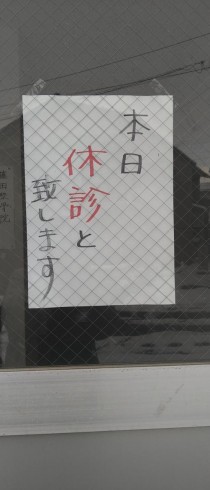 本日
休診と
致します